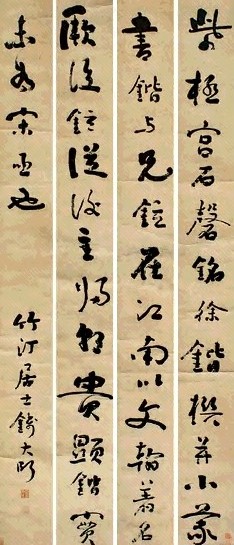 紫極宮石磬銘徐鍇撰并小篆
書鍇与兄鉉在江南以文翰著名
厥後鉉從後主歸朝貴顯鍇實
未為宋臣也
竹汀居士錢大昕